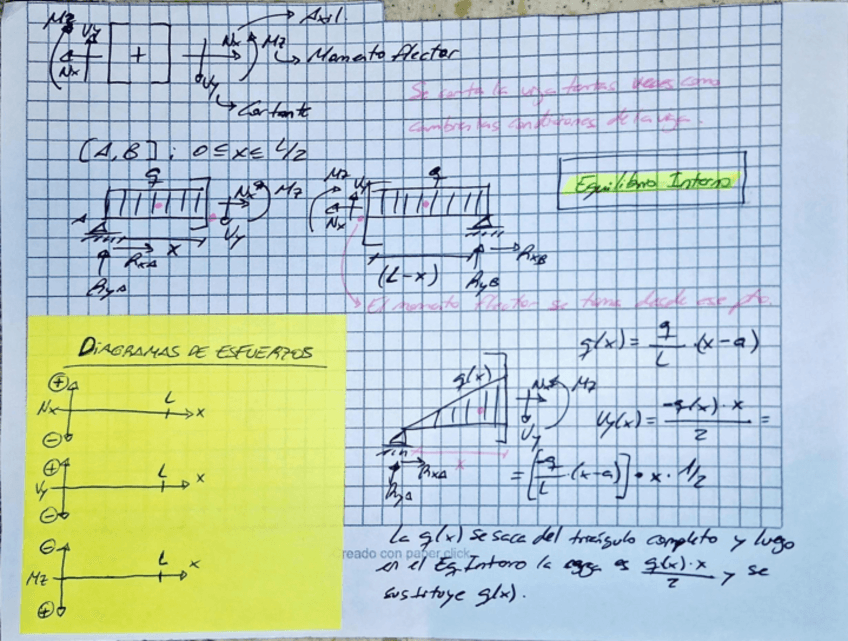 Mz Vy Nx + Nx Vy Mz
Axil
Momento flector
Cortante
Se corta la viga tantas veces como
cambien las condiciones de la viga.
[A, B] : 0 ≤ x ≤ L/2
Equilibrio Interno
q Nx Mz Vy
A RxA x RyA
Mz Vy Nx q
(L-x) RyB RxB
El momento flector se toma desde ese pto.
DIAGRAMAS DE ESFUERZOS
⊕ Nx ⊖ L x
⊕ Vy ⊖ L x
⊖ Mz ⊕ L x
q(x) = q/L · (x-a)
q(x) Nx Mz Vy
RxA x RyA
Vy(x) = -q(x)·x / 2 =
= [-q/L · (x-a)] · x · 1/2
La q(x) se saca del triángulo completo y luego
en el Eq. Interno la carga es q(x)·x / 2 y se
sustituye q(x).
reado con paper.click